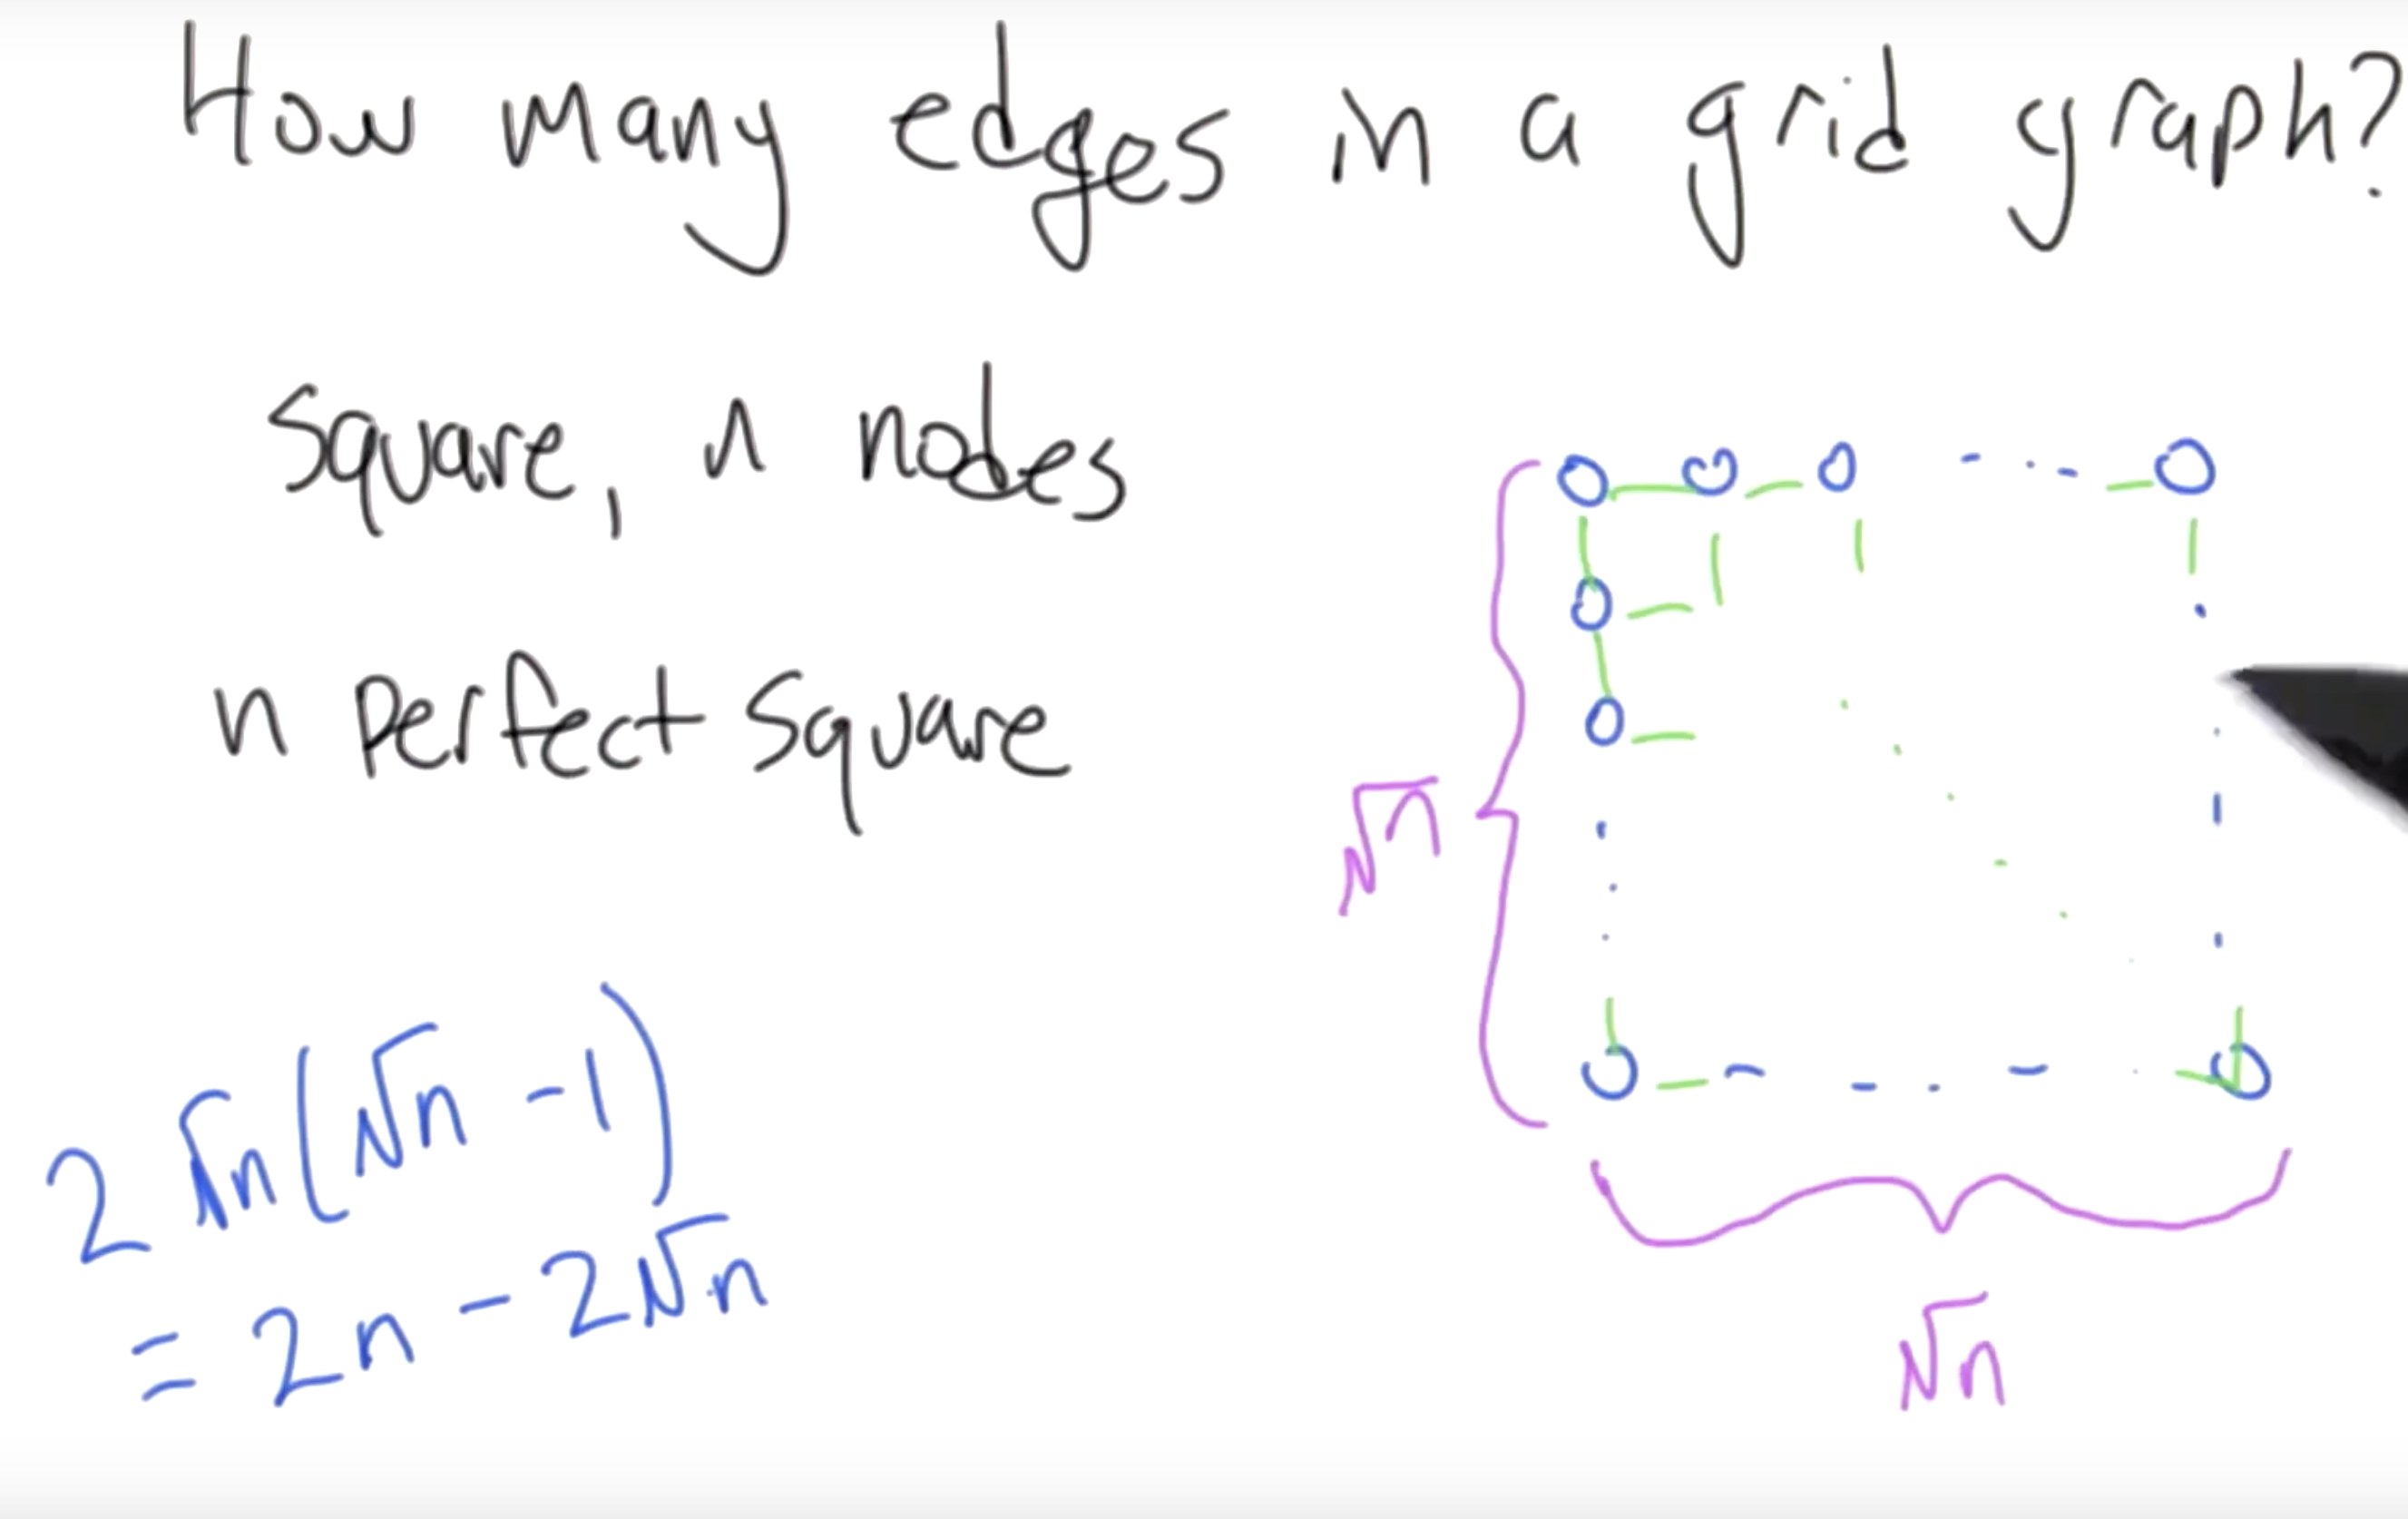 How many edges in a grid graph?
square, n nodes
n perfect square
√n
2√n(√n - 1)
= 2n - 2√n
√n